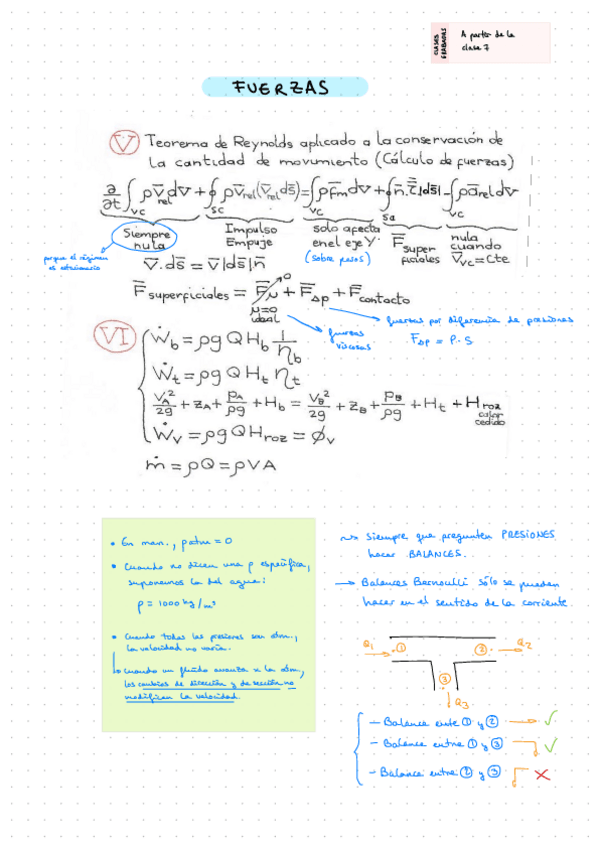 CLASES GRABADAS
A partir de la
clase 7
FUERZAS
V Teorema de Reynolds aplicado a la conservación de
la cantidad de movimiento (Cálculo de fuerzas)
∂/∂t ∫vc ρ v̅ dv + ∮sc ρ v̅rel (v̅rel ds̅) = ∫vc ρ f̅m dv + ∮sa n̅. τ̿ |ds̅| - ∫vc ρ a̅rel dv
Siempre nula
Impulso Empuje
solo afecta en el eje Y
F̅ superficiales
nula cuando V̅vc = Cte
porque el régimen
es estacionario
(sobre pesos)
v̅. ds̅ = v̅ |ds̅| n̅
F̅ superficiales = F̅μ + F̅Δp + F̅contacto
0
μ=0 ideal
fuerzas viscosas
fuerzas por diferencia de presiones
FΔp = P. S
VI
Ẇb = ρg Q Hb 1/ηb
Ẇt = ρg Q Ht ηt
VA²/2g + zA + pA/ρg + Hb = VB²/2g + zB + pB/ρg + Ht + Hroz
calor cedido
Ẇv = ρg Q Hroz = ϕv
ṁ = ρQ = ρVA
• En man., patm = 0
• Cuando no dicen una ρ específica,
suponemos la del agua:
ρ = 1000 kg/m³
• Cuando todas las presiones son atm.,
la velocidad no varía.
Cuando un fluido avanza x la atm,
los cambios de dirección y de sección no
modifican la velocidad.
~> Siempre que pregunten PRESIONES
hacer BALANCES..
→ Balances Bernoulli sólo se pueden
hacer en el sentido de la corriente.
Q1 → ① ② → Q2
③
↓ Q3
- Balance ente ① y ② → ✓
- Balance entre ① y ③ ✓
- Balance entre ② y ③ ✗